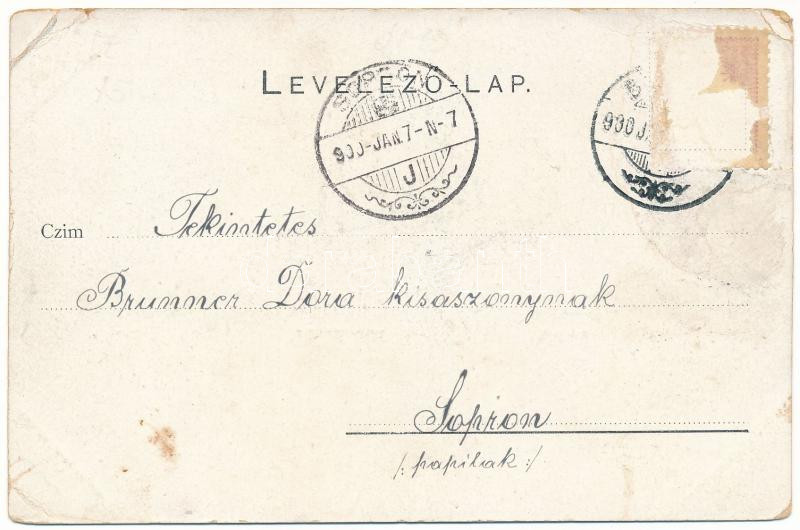 LEVELEZŐ-LAP.
SOPRON
900-JAN.7-N-7
J
900 J
Czim
Tekintetes
Brunner Dóra kisaszonynak
Sopron
/: papilak :/